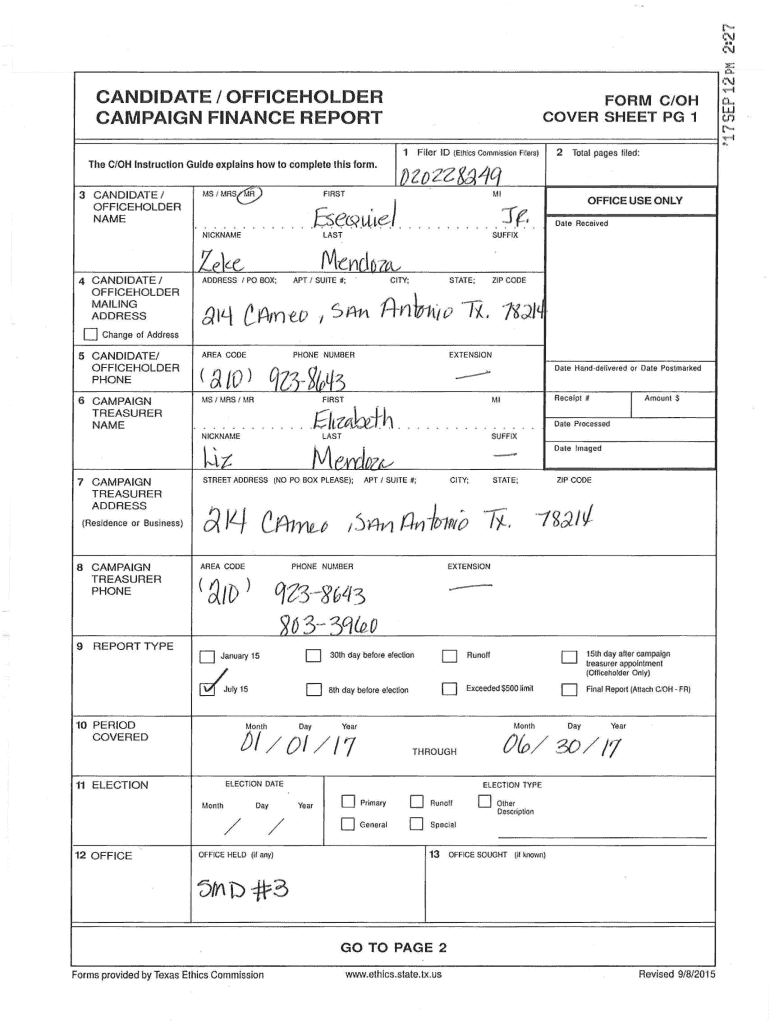 '17 SEP 12 PM 2:27
CANDIDATE / OFFICEHOLDER
CAMPAIGN FINANCE REPORT
FORM C/OH
COVER SHEET PG 1
The C/OH Instruction Guide explains how to complete this form.
1 Filer ID (Ethics Commission Filers)
020228249
2 Total pages filed:
3 CANDIDATE / OFFICEHOLDER NAME
MS / MRS / MR FIRST MI
Esequiel JR.
NICKNAME LAST SUFFIX
Zeke Mendoza
OFFICE USE ONLY
Date Received
4 CANDIDATE / OFFICEHOLDER MAILING ADDRESS
Change of Address
ADDRESS / PO BOX; APT / SUITE #; CITY; STATE; ZIP CODE
214 CAmeo, SAn Antonio Tx. 78214
5 CANDIDATE/ OFFICEHOLDER PHONE
AREA CODE PHONE NUMBER EXTENSION
(210) 923-8643 —
Date Hand-delivered or Date Postmarked
6 CAMPAIGN TREASURER NAME
MS / MRS / MR FIRST MI
Elizabeth
NICKNAME LAST SUFFIX
Liz Mendoza —
Receipt # Amount $
Date Processed
Date Imaged
7 CAMPAIGN TREASURER ADDRESS
(Residence or Business)
STREET ADDRESS (NO PO BOX PLEASE); APT / SUITE #; CITY; STATE; ZIP CODE
214 CAmeo, SAn Antonio Tx. 78214
8 CAMPAIGN TREASURER PHONE
AREA CODE PHONE NUMBER EXTENSION
(210) 923-8643 —
803-3960
9 REPORT TYPE
January 15 30th day before election Runoff 15th day after campaign treasurer appointment (Officeholder Only)
July 15 8th day before election Exceeded $500 limit Final Report (Attach C/OH - FR)
10 PERIOD COVERED
Month Day Year Month Day Year
01/01/17 THROUGH 06/30/17
11 ELECTION
ELECTION DATE ELECTION TYPE
Month Day Year
/ /
Primary Runoff Other Description
General Special
12 OFFICE
OFFICE HELD (if any)
SMD #3
13 OFFICE SOUGHT (if known)
GO TO PAGE 2
Forms provided by Texas Ethics Commission www.ethics.state.tx.us Revised 9/8/2015